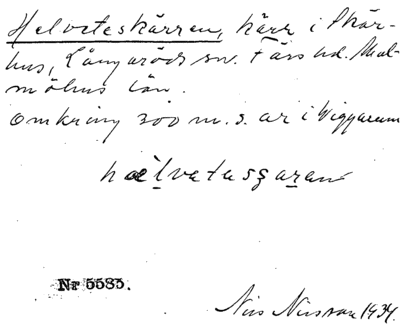 Helveteskärren, kärr i Skär-
hus, Långaröds sn. Färs hd. Mal-
möhus län.
Omkring 300 m. s. ar i Wiggarum
hælvetasʒaran
Nr 5583.
Nils Nilsson 1934.